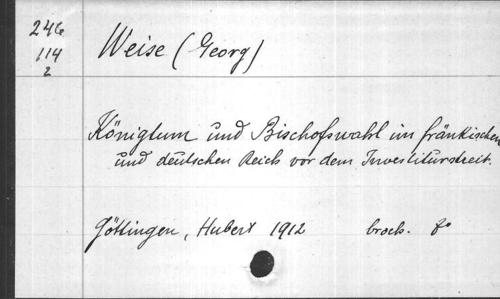 246
114
2
Weise (Georg)
Königtum und Bischofswahl im fränkischen
und deutschen Reich vor dem Investiturstreit.
Göttingen, Hubert 1912 broch. f°